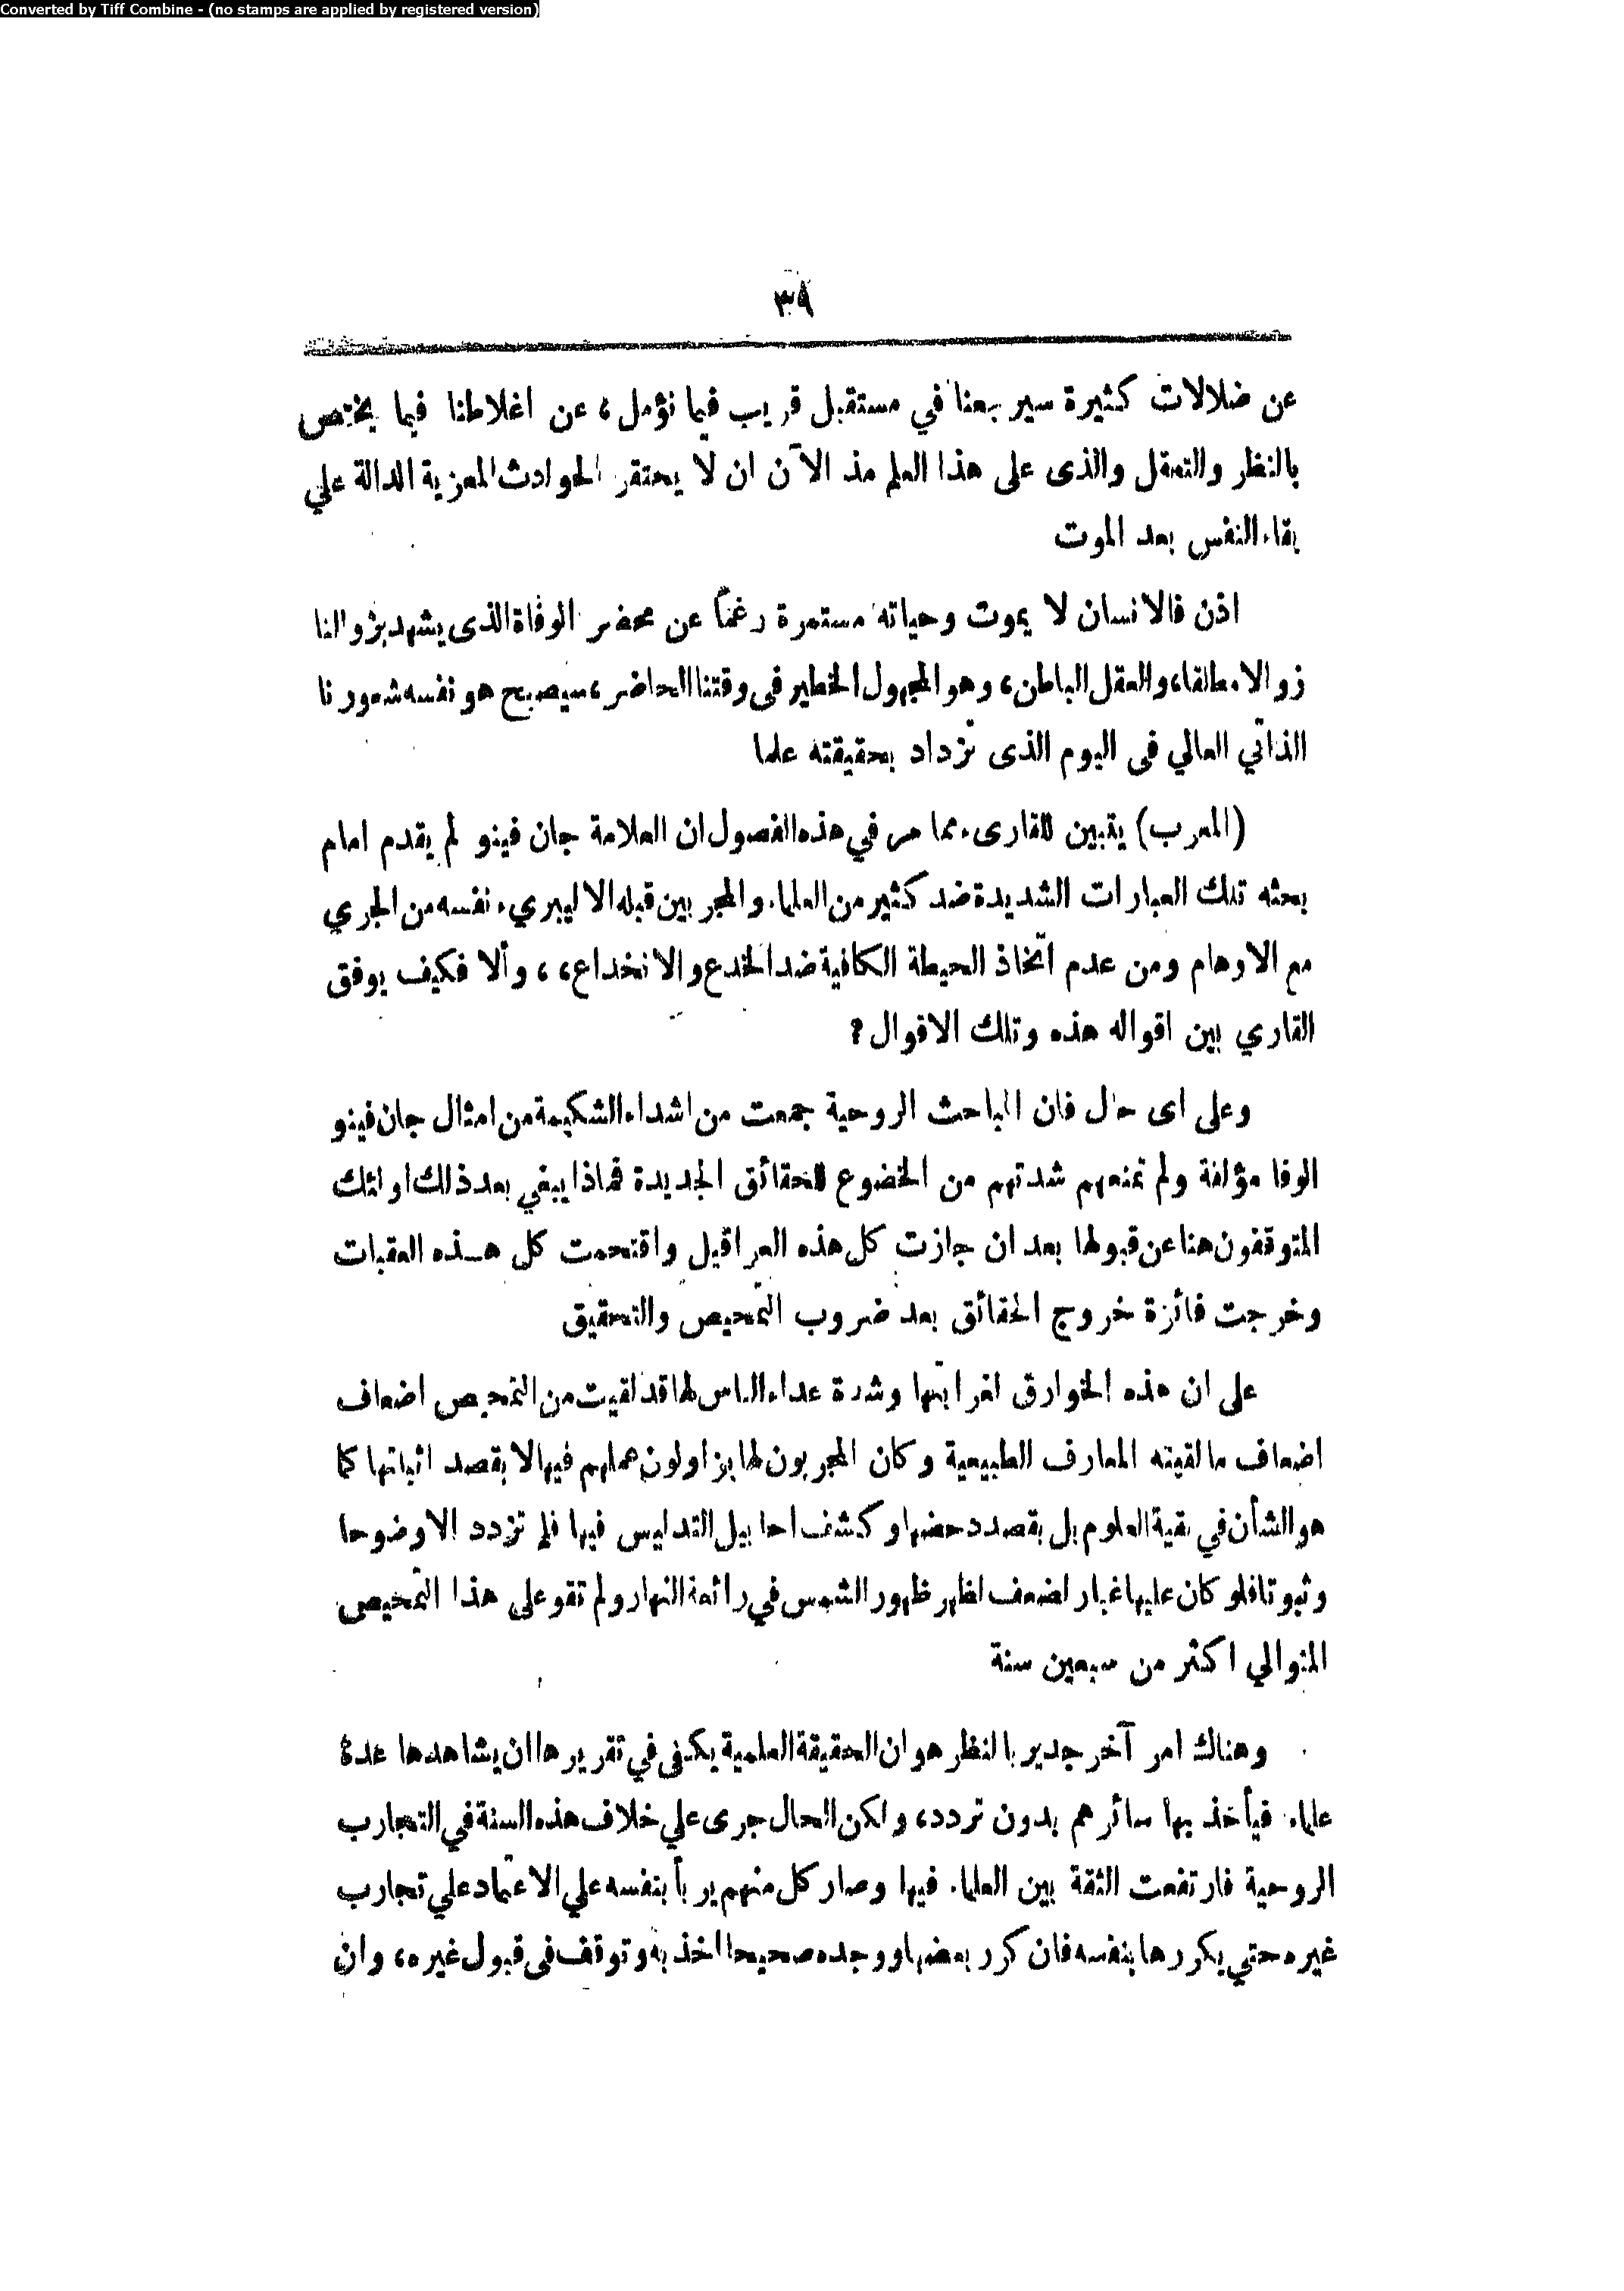 Converted by Tiff Combine - (no stamps are applied by registered version)
٣٩
عن ضلالات كثيرة سيرجعنا في مستقبل قريب فيما نؤمل، عن اغلاطنا فيما يختص
بالنظر والتعقل والذى على هذا العلم مذ الآن ان لا يحتقر الحوادث المعزية الدالة علي
بقاء النفس بعد الموت
اذن فالانسان لا يموت وحياته مستمرة رغمًا عن محضر الوفاة الذى يشهد بزوالنا
زوالا مطلقا، والعقل الباطن، وهو المجهول الخطير فى وقتنا الحاضر، سيصبح هو نفسه شعورنا
الذاتي العالي فى اليوم الذى نزداد بحقيقته علما
(المعرب) يتبين للقارىء مما مر في هذه الفصول ان العلامة جان فينو لم يقدم امام
بحثه تلك العبارات الشديدة ضد كثير من العلماء والمجربين قبله الا ليبريء نفسه من الجري
مع الاوهام ومن عدم اتخاذ الحيطة الكافية ضد الخدع والانخداع،، وألا فكيف يوفق
القاري بين اقواله هذه وتلك الاقوال؟
وعلى اى حال فان المباحث الروحية جمعت من اشداء الشكيمة من امثال جان فينو
الوفا مؤلفة ولم تمنعهم شدتهم من الخضوع للحقائق الجديدة فماذا يبغي بعد ذلك اولئك
المتوقفون هنا عن قبولها بعد ان جازت كل هذه العراقيل واقتحمت كل هذه العقبات
وخرجت فائزة خروج الحقائق بعد ضروب التمحيص والتحقيق
على ان هذه الخوارق لغرابتها وشدة عداء الناس لها قد لقيت من التمحيص اضعاف
اضعاف ما لقيته المعارف الطبيعية وكان المجربون لها يزاولون عملهم فيها لا بقصد اثباتها كما
هو الشأن في بقية العلوم بل بقصد دحضها وكشف احابيل التدليس فيها فلم تزدد الا وضوحا
وثبوتا فلو كان عليها غبار لضعف لظهر ظهور الشمس في رائعة النهار ولم تقو على هذا التمحيص
المتوالي اكثر من سبعين سنة
وهناك امر آخر جدير بالنظر هو ان الحقيقة العلمية يكفى في تقريرها ان يشاهدها عدة
علماء فيأخذ بها سائرهم بدون تردد، ولكن الحال جرى علي خلاف هذه السنة في التجارب
الروحية فارتفعت الثقة بين العلماء فيها وصار كل منهم يربأ بنفسه علي الاعتماد علي تجارب
غيره حتي يكررها بنفسه فان كرر بعضها ووجده صحيحا اخذ به وتوقف فى قبول غيره، وان